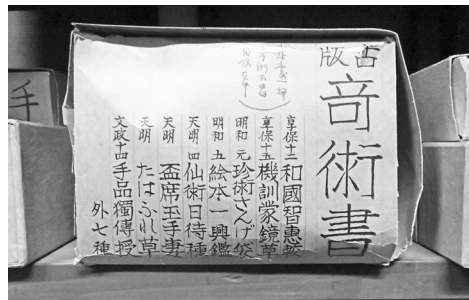 古版
奇術書
享保十二 和國智惠較
享保十五 機訓蒙鏡草
明和元 珍術さんげ袋
明和五 絵本一興鑑
天明四 仙術日待種
天明 盃席玉手妻
天明 たはふれ草
文政十四 手品獨傳授
外七種
手